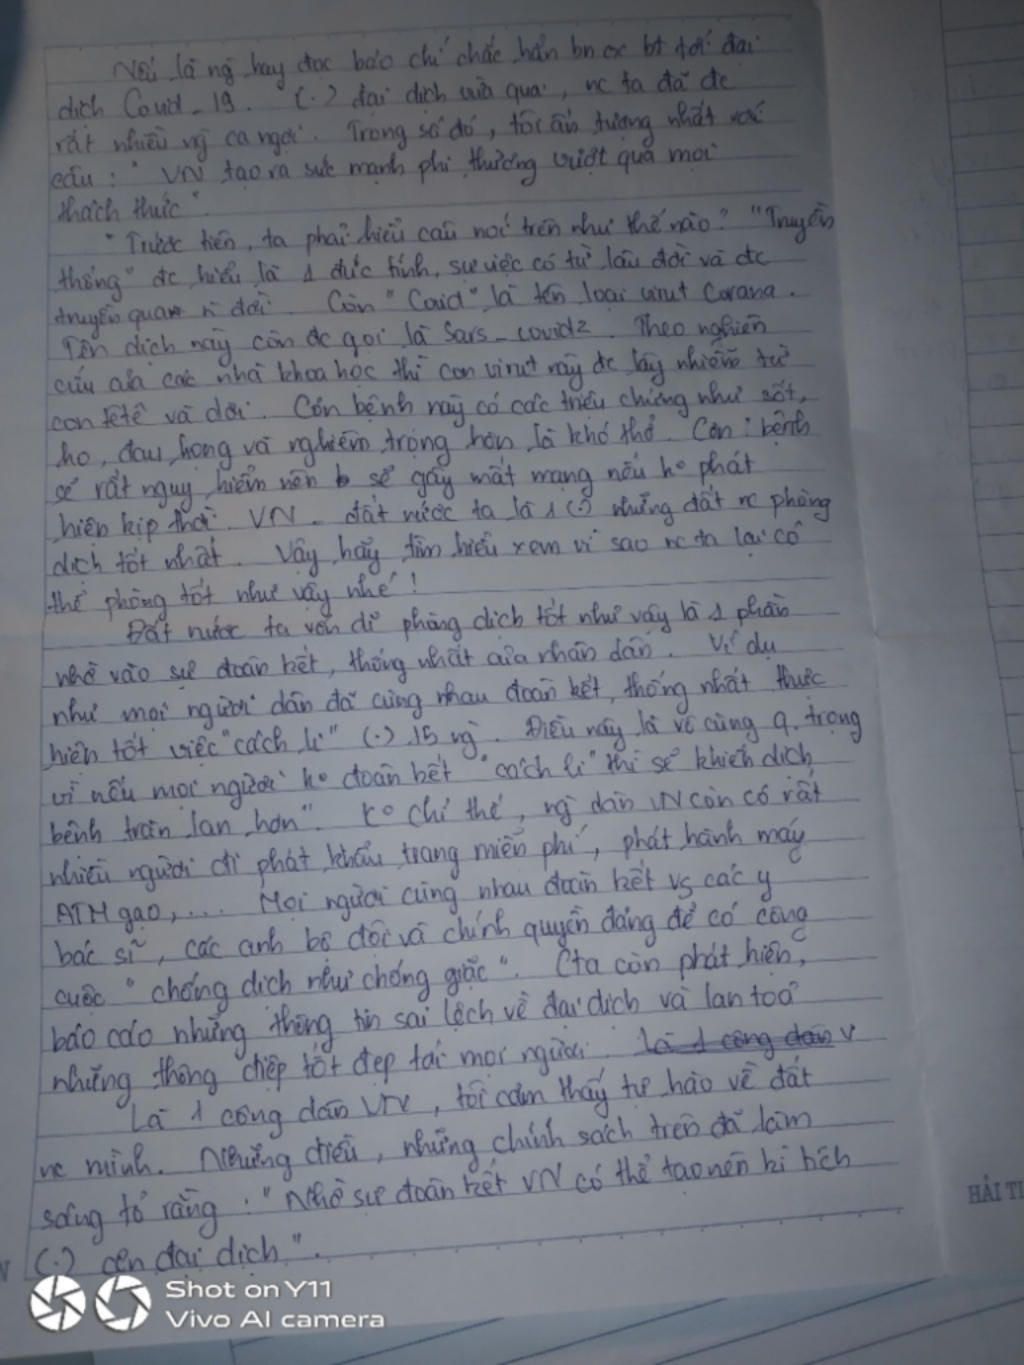 Nếu là ng hay đọc báo chí chắc hẳn bn đc bt tới đại
dịch Covid_19. (.) đại dịch vừa qua, nc ta đã đc
rất nhiều ng ca ngợi. Trong số đó, tôi ấn tượng nhất với
câu: "VN tạo ra sức mạnh phi thường vượt qua mọi
thách thức".
"Trước tiên, ta phải hiểu câu nói trên như thế nào? "Truyền
thống" đc hiểu là 1 đức tính, sự việc có từ lâu đời và đc
truyền qua n đời. Còn "Covid" là tên loại virut Corana.
Tên dịch này còn đc gọi là Sars_covid2. Theo nghiên
cứu của các nhà khoa học thì con virut này đc lây nhiễm từ
con têtê và dơi. Cón bệnh này có các triệu chứng như sốt,
ho, đau họng và nghiêm trọng hơn là khó thở. Căn bệnh
sẽ rất nguy hiểm nên sẽ gây mất mạng nếu ko phát
hiện kịp thời. VN - đất nước ta là 1 (.) những đất nc phòng
dịch tốt nhất. Vậy hãy tìm hiểu xem vì sao nc ta lại có
thể phòng tốt như vậy nhé!
Đất nước ta vốn dĩ phòng dịch tốt như vậy là 1 phần
nhờ vào sự đoàn kết, thống nhất của nhân dân. Ví dụ
như mọi người dân đã cùng nhau đoàn kết, thống nhất thực
hiện tốt việc "cách li" (.) 15 ng. Điều này là vô cùng q. trọng
vì nếu mọi người ko đoàn kết "cách li" thì sẽ khiến dịch
bệnh tràn lan hơn". Ko chỉ thế, ng dân VN còn có rất
nhiều người đi phát khẩu trang miễn phí, phát hành máy
ATM gạo,... Mọi người cùng nhau đoàn kết vs các y
bác sĩ, các anh bộ đội và chính quyền đảng để có công
cuộc "chống dịch như chống giặc". Cta còn phát hiện,
báo cáo những thông tin sai lệch về đại dịch và lan toả
những thông điệp tốt đẹp tới mọi người. là 1 công dân V
Là 1 công dân VN, tôi cảm thấy tự hào về đất
nc mình. Những điều, những chính sách trên đã làm
sáng tỏ rằng: "Nhờ sự đoàn kết VN có thể tạo nên kì tích
(.) cơn đại dịch".
HẢI T
Shot on Y11
Vivo AI camera